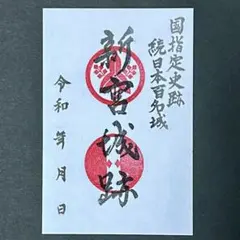 国指定史跡
続日本百名城
新宮城跡
令和年月日